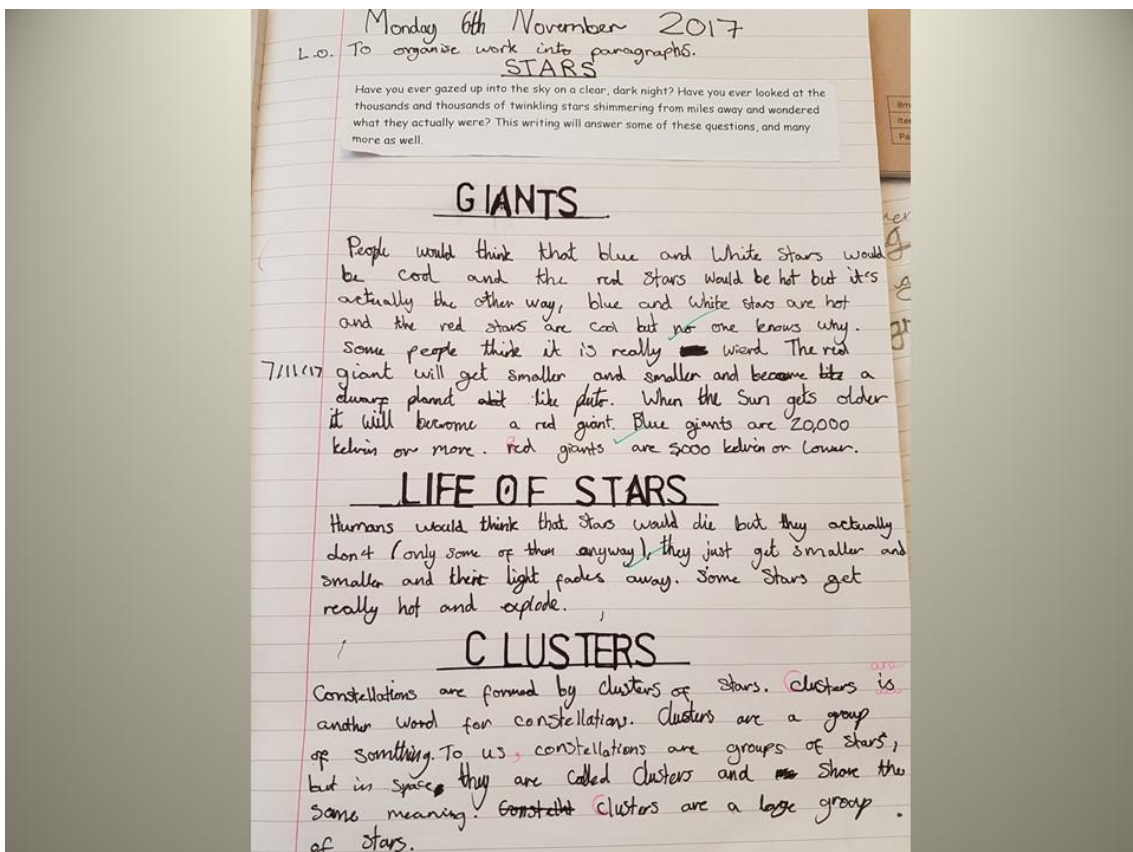 Monday 6th November 2017
L.O. To organise work into paragraphs.
STARS
Have you ever gazed up into the sky on a clear, dark night? Have you ever looked at the
thousands and thousands of twinkling stars shimmering from miles away and wondered
what they actually were? This writing will answer some of these questions, and many
more as well.
GIANTS
People would think that blue and White Stars would
be cool and the red Stars would be hot but it's
actually the other way, blue and white stars are hot
and the red stars are cool but no one knows why.
Some people think it is really wierd The red
7/11/17 giant will get smaller and smaller and become a
dwarf plannet like pluto. When the Sun gets older
it will become a red giant. Blue giants are 20,000
kelvin or more. Red giants are 5000 kelvin or lower.
LIFE OF STARS
Humans would think that Stars would die but they actually
don't (only some of them anyway), they just get smaller and
smaller and their light fades away. Some Stars get
really hot and explode.
CLUSTERS
are
Constellations are formed by clusters of stars. Clusters is
another word for constellations. Clusters are a group
of somthing. To us, constellations are groups of stars,
but in space, they are called Clusters and Share the
same meaning. Clusters are a large group
of stars.